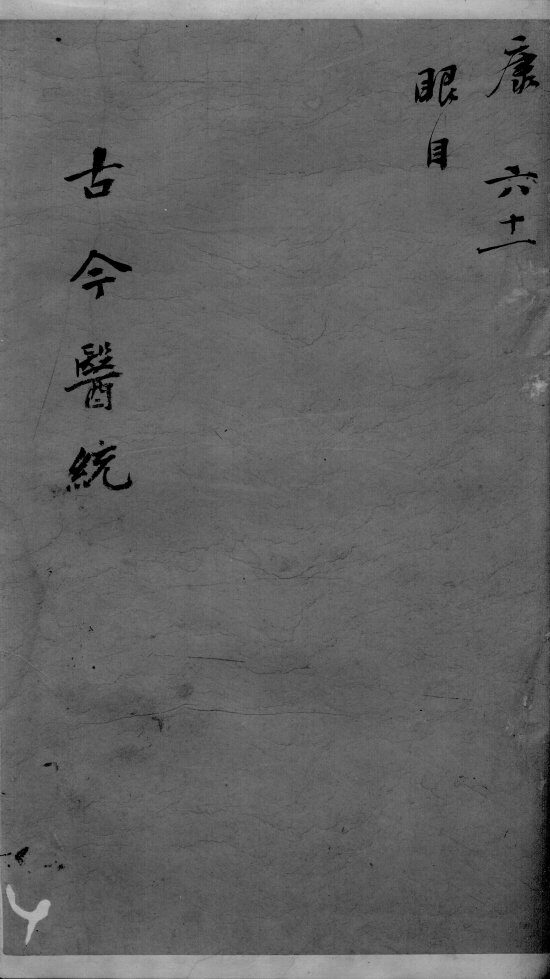 康 六十一
眼目
古今醫統